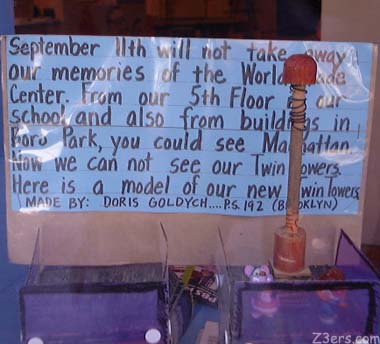 September 11th will not take away
our memories of the World Trade
Center. From our 5th Floor our
school and also from buildings in
Boro Park, you could see Manhattan.
Now we can not see our Twin Towers.
Here is a model of our new Twin Towers
MADE BY: DORIS GOLDYCH....P.S. 192 (BROOKLYN)
Z3ers.com